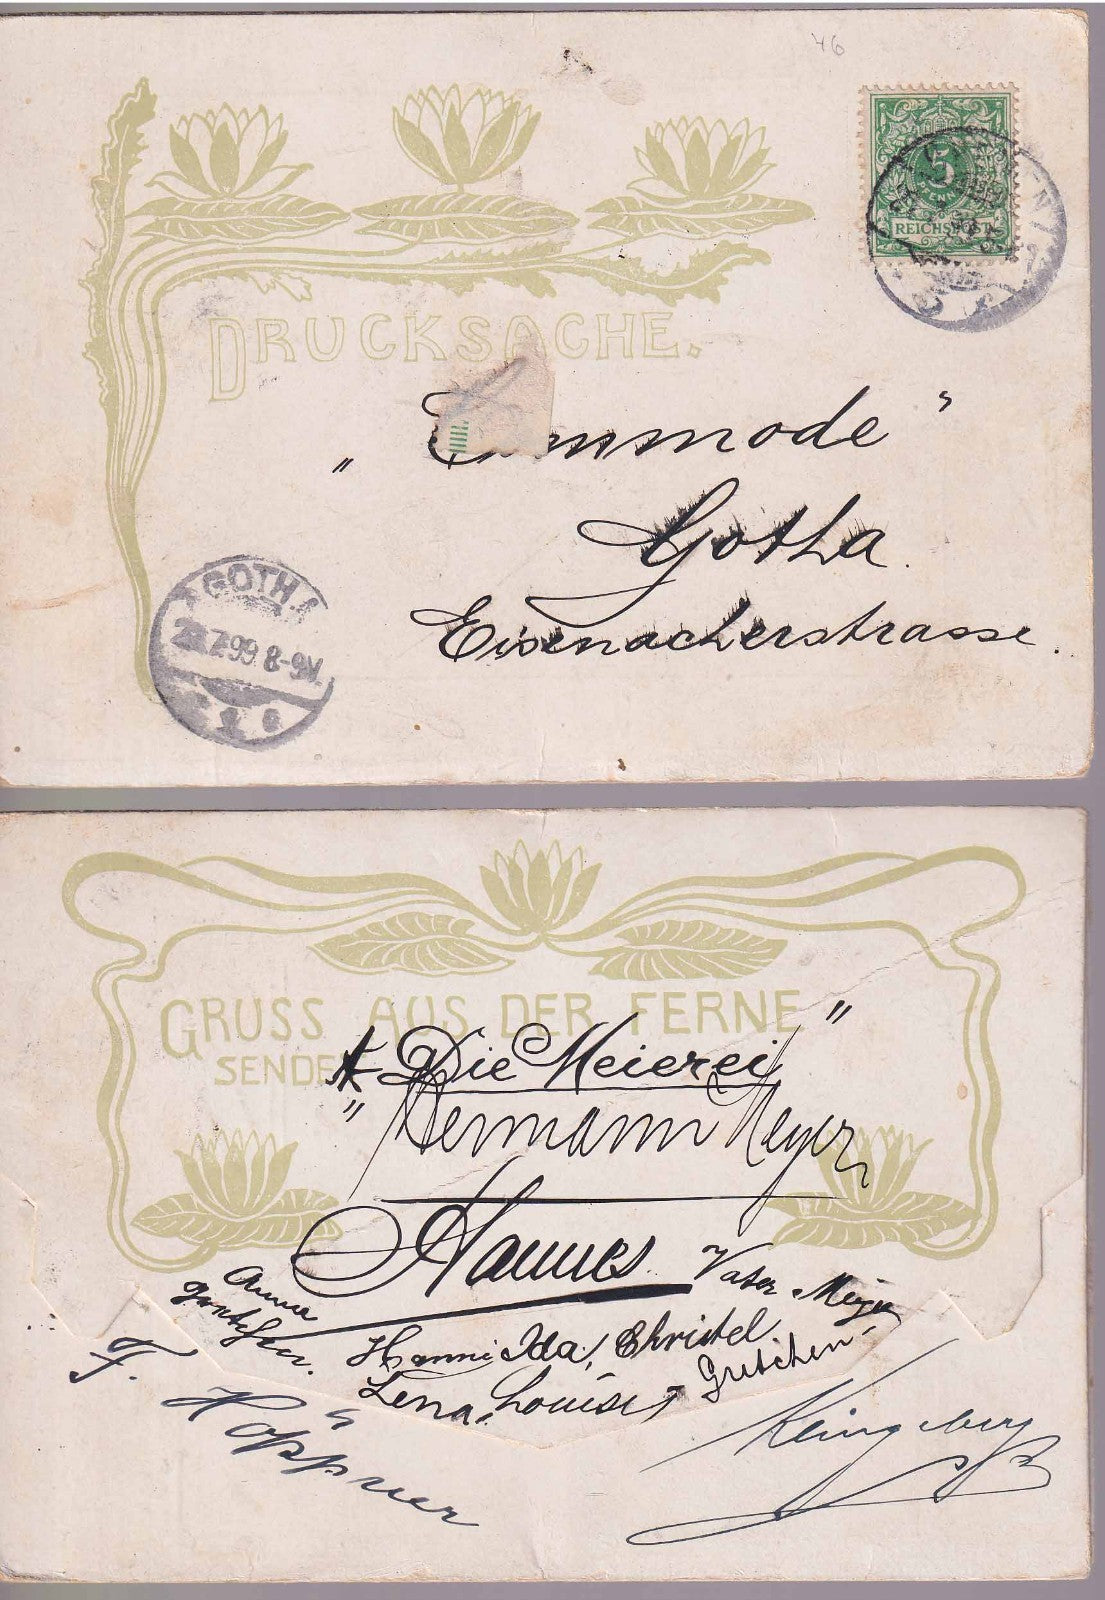 46
5
REICHSPOST
DRUCKSACHE.
„ Commode “
Gotha.
Eisenacherstrasse.
GOTHA
7.99. 8-9V.
GRUSS AUS DER FERNE
SENDET
„ Die Meierei “
Hermann Meyer
Hannes
Vater Meyer
Anna
Gretchen.
Hanni Ida, Christel
Lena, Louise, Gretchen
F. Höppner
Klingeberg